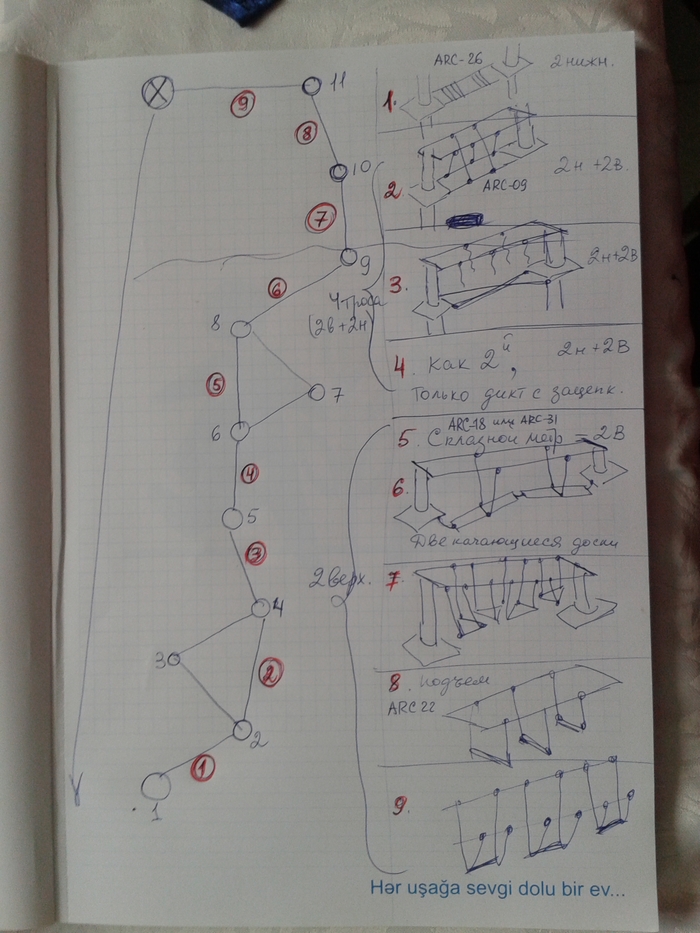 11
9
8
10
7
9
6
4 троса
(2в+2н)
8
5
7
6
4
5
3
2 верх.
4
3
2
2
1
1
1. ARC-26 2 нижн.
2. ARC-09 2н +2в.
3. 2н+2в
4. Как 2й, 2н+2В
только дикт с зацепк.
ARC-18 или ARC-31
5. Складной метр = 2В
6.
Две качающиеся доски
7.
8. подъем
ARC 22
9.
Hər uşağa sevgi dolu bir ev...